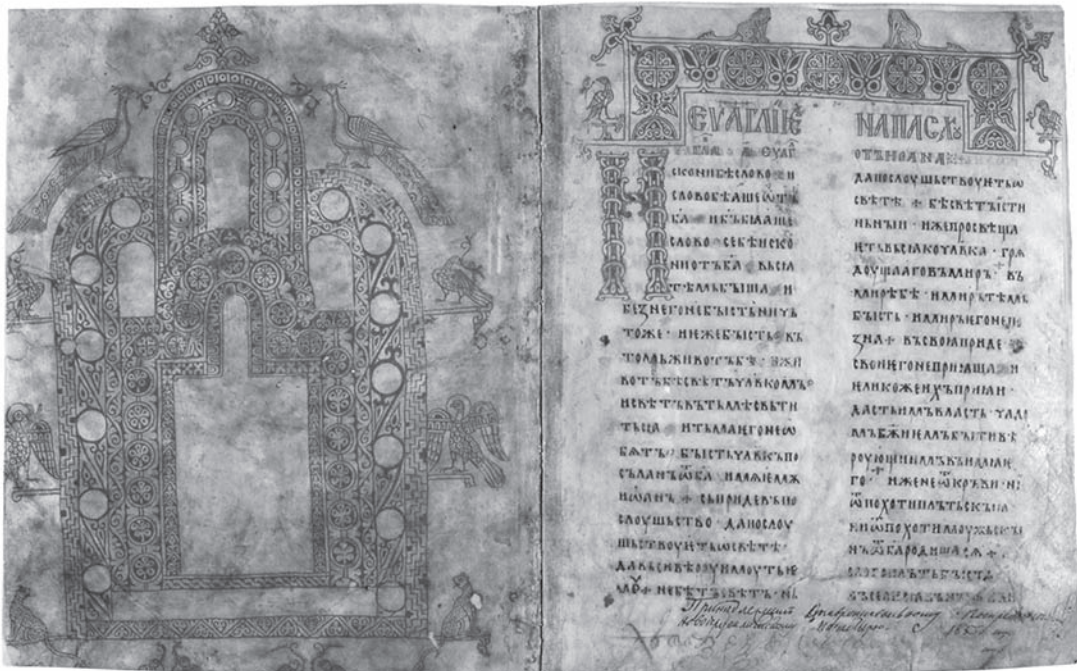 ЄУАГЛИѤ
А ЄУАГ
ИСКОНИБѢСЛОВО И
СЛОВОБѢАШЕѾ
БА ИБЪБѢАШЕ
СЛОВО СЕБѢИСКО
НИОТЪБА ВЬСꙖ
ТѢМЬБЫША И
БЕЗНЕГОНЕБЫСТЬНИЧЬ
ТОЖЕ · ИЖЕБЫСТЬ ВЪ
ТОМЬЖИВОТЪБѢ · ИЖИ
ВОТЪБѢСВѢТЪЧЛВКОМЪ
ИСВѢТЪВЪТЬМѢСВЬТИ
ТЬСА ИТЬМАѤГОНЕѠ
БѦТЪ · БЫСТЬЧЛВКЪПО
СЪЛАНЪѾБА ИМѦ
ИѠАНЪ + СЬПРИДЕВЪПО
СЛОУШЬСТВО ДАПОСЛОУ
ШЬСТВОУѤТЬѠСВѢТѢ ·
ДАВЬСИВѢРОУИМОУТЬѤ
МОУ + НЕБѢТЪСВѢТЪ НЪ
НАПАСХꙊ
ОТЪИОАНА
ДАПОСЛОУШЬСТВОУѤТЬѠ
СВѢТѢ + БѢСВѢТЪИСТИ
НЬНЫИ · ИЖЕПРОСВѢЩА
ѤТЬВЬСꙖКОЧЛВКА · ГРѦ
ДОУЩААГОВЪМИРЪ · ВЪ
МИРѢБѢ · ИМИРЪТѢМЬ
БЫСТЬ · ИМИРЪѤГОНЕПО
ЗНА + ВЪСВОꙖПРИДЕ
СВОИѤГОНЕПРИꙖША · И
ѤЛИКОЖЕИХЪПРИꙖША ·
ДАСТЬИМЪВЛАСТЬ · ЧАДО
МЪБЖИѤМЪБЫТИВѢ
РОУЮЩИИМЪВЪИМѦѤ
ГО · ИЖЕНЕѾКРЪВИ · НИ
ѾПОХОТИПЛЪТЬСКЫꙖ
НИѾПОХОТИМОУЖЬСКЫ
НЪѾБАРОДИШАСѦ +
Принадлежащий
1854